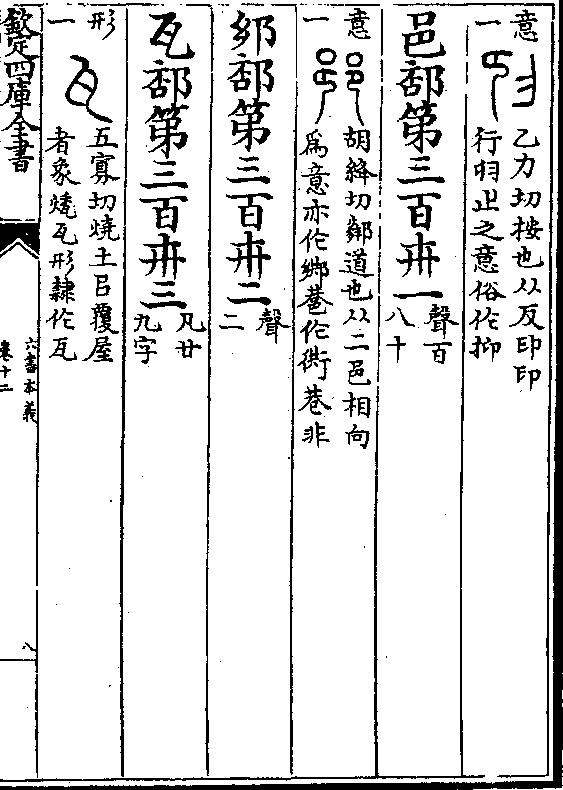 意一
乙力切按也从反印印
行止之意俗作抑
邑部第三百卌一
聲百
八十
意一
胡絳切鄰道也从二邑相向
為意亦作鄉巷作衖巷非
部第三百卌二
聲
二
瓦部第三百卌三
凡廿
九字
形一
五寡切燒土㠯覆屋
者象燒瓦形隸作瓦
欽定四庫全書
六書本義
卷十二
八